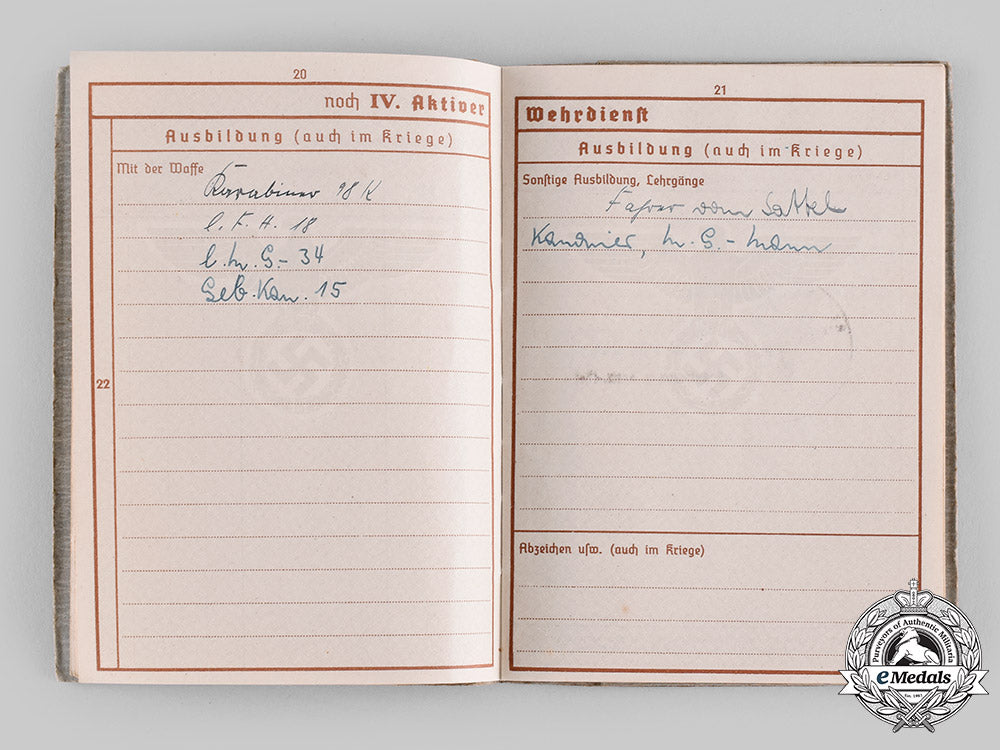 20
noch IV. Aktiver
Ausbildung (auch im Kriege)
Mit der Waffe
Karabiner 98 K
l. F. H. 18
l. M. G. - 34
Geb. Kan. 15
22
21
Wehrdienst
Ausbildung (auch im Kriege)
Sonstige Ausbildung, Lehrgänge
Fahrer vom Sattel
Kanonier, M. G. - Mann
Abzeichen usw. (auch im Kriege)
Purveyors of Authentic Militaria
eMedals